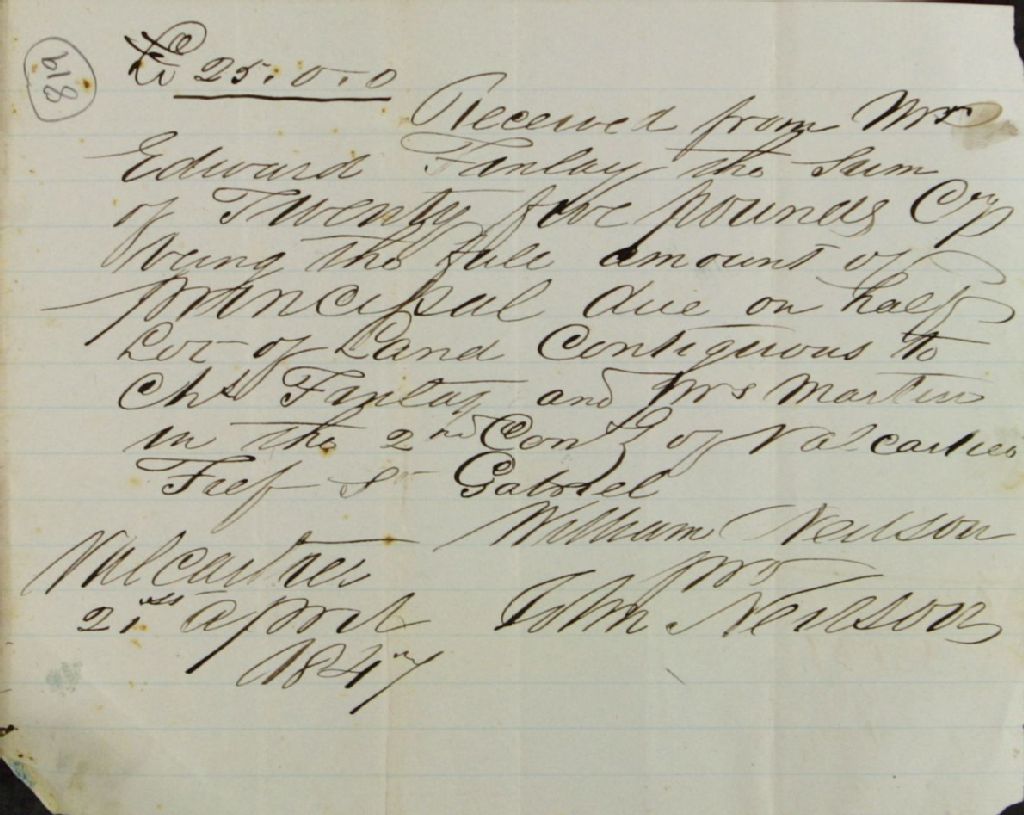 918
£ 25. 0 - 0
Received from Mr
Edward Finlay the Sum
of Twenty five pounds Cy
being the full amount of
principal due on half
Lot of Land Contiguous to
Chs Finlay and Jms Martin
in the 2nd Con of Valcartier
Fief St Gabriel
William Neilson
Valcartier
pro
21st April
John Neilson
1847